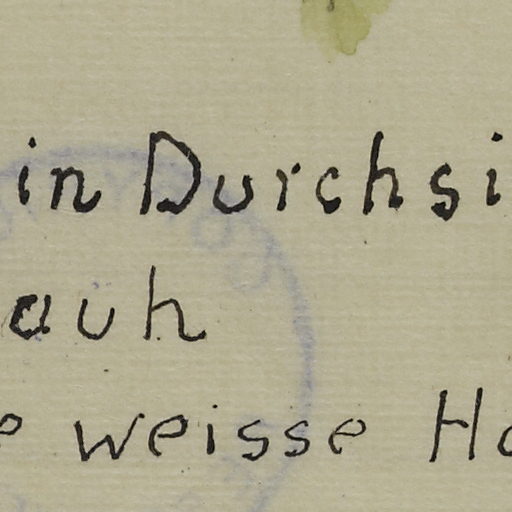 in Durchsi
auh
e weisse Ho